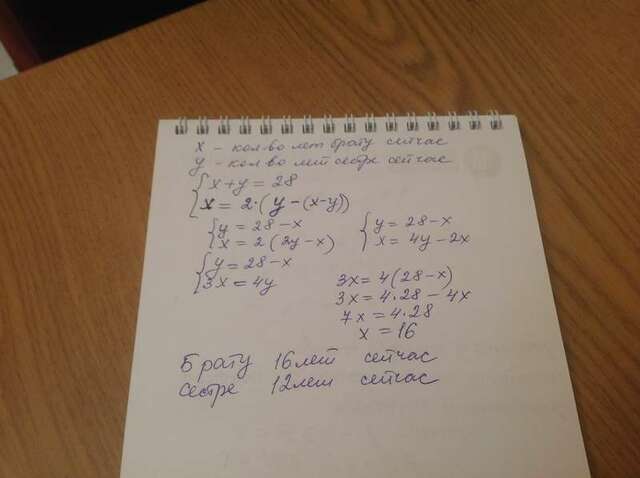 x - кол-во лет брату сейчас
y - кол во лет сестре сейчас
{x+y = 28
x = 2·(y-(x-y))
{y = 28-x
x = 2(2y-x)
{y = 28-x
x = 4y-2x
{y = 28-x
3x = 4y
3x = 4(28-x)
3x = 4·28 - 4x
7x = 4·28
x = 16
Брату 16 лет сейчас
сестре 12 лет сейчас